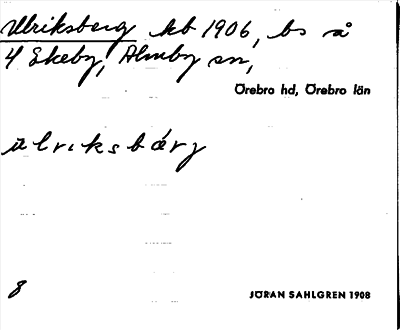 Ulriksberg kb 1906, bs å
4 Ekeby, Almby sn,
Örebro hd, Örebro län
ulriksbärj
8
JÖRAN SAHLGREN 1908